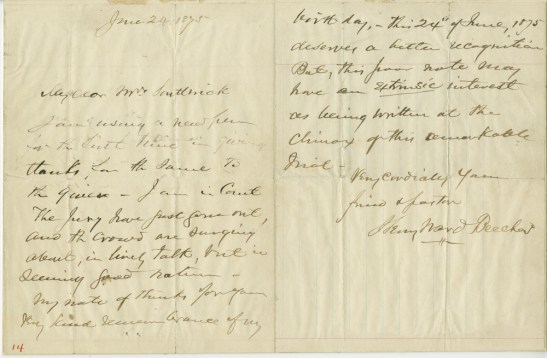 June 24 1875
My dear Mrs Southwick
I am using a new pen
for the first time in giving
thanks, for the same to
the Giver - I am in Court
The Jury have just gone out,
and the crowd are surging
about, in lively talk, but in
seeming good nature -
My note of thanks for your
very kind remembrance of my
14
birth day, - this 24th of June, 1875
deserves a better recognition
But, this poor note may
have an extrinsic interest
as being written at the
Climax of this remarkable
Trial -
Very cordially your
friend & pastor
Henry Ward Beecher